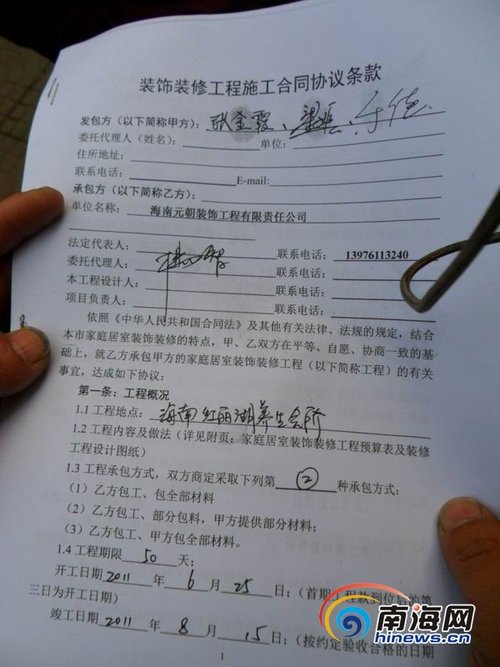 装饰装修工程施工合同协议条款
发包方（以下简称甲方）：张金霞、
委托代理人（姓名）：单位：
住所地址：
联系电话：E-mail:
承包方（以下简称乙方）：
单位名称：海南元朝装饰工程有限责任公司
法定代表人：联系电话：13976113240
委托代理人：联系电话：
本工程设计人：联系电话：
项目负责人：联系电话：
依照《中华人民共和国合同法》及其他有关法律、法规的规定，结合
本市家庭居室装饰装修的特点，甲、乙双方在平等、自愿、协商一致的基
础上，就乙方承包甲方的家庭居室装饰装修工程（以下简称工程）的有关
事宜，达成如下协议：
第一条：工程概况
1.1 工程地点：海南红丽湖养生会所
1.2 工程内容及做法（详见附页：家庭居室装饰装修工程预算表及装修
工程设计图纸）
1.3 工程承包方式，双方商定采取下列第②种承包方式：
（1）乙方包工、包全部材料
（2）乙方包工、部分包料，甲方提供部分材料；
（3）乙方包工、甲方包全部材料。
1.4 工程期限 50 天；
开工日期 2011 年 6 月 25 日；（首期工程款到位后的第
三日为开工日期）
竣工日期 2011 年 8 月 15 日；（按约定验收合格的日期
1
南海网
hinews.cn